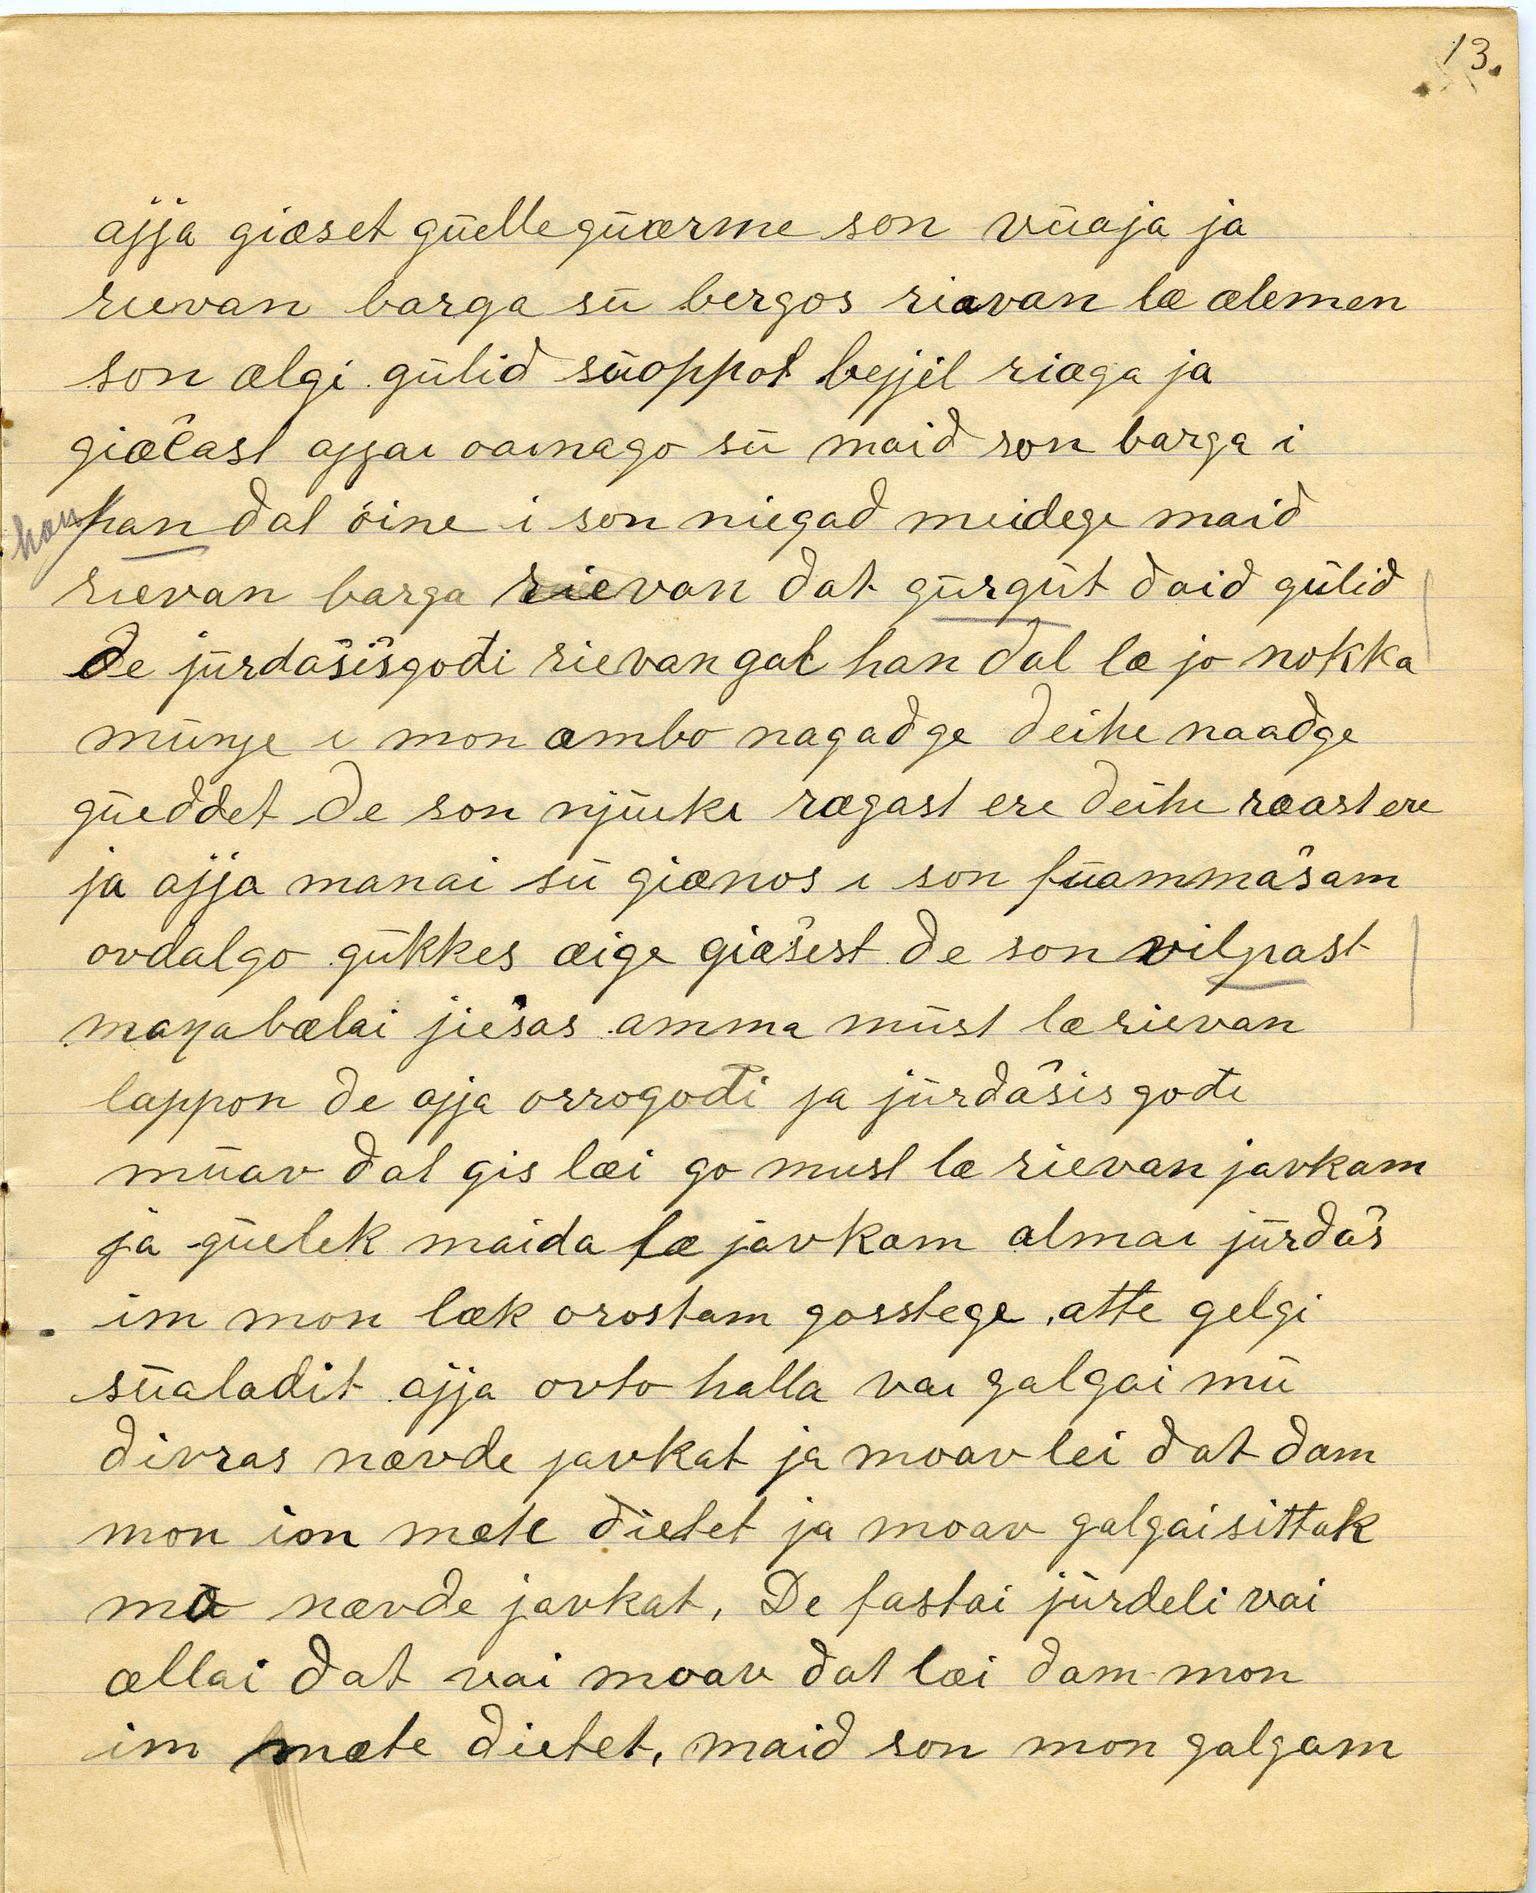 13.
ajja giæset güelle güærme son vüaja ja
rievan barga sü bergos riavan læ ælemen
son ælgi gülid süoppot bejjil riæga ja
giæčast ajjai oainago sü maid son barga i
han
han dal öine i son niegad meidege maid
rievan barga rievan dat gürgüt daid gülid
De jürdašišgođi rievan gal han dal læ jo nokka
münje i mon æmbo nagadge deihe naadge
gueddet De son njuike rægast ere deihe ræast ere
ja ajja manai sü giænos i son füammašam
ovdalgo gükkes æige giæšest De son vilpast
maŋabælai ješas amma müst læ rievan
lappon de ajja orrogođi ja jürdašisgođi
müav dat gis læi go must læ rievan javkam
ja güelek maida læ javkam almai jürdaš
im mon læk orostam gosstege, atte gelgi
süaladit ajja ovto halla vai galgai mü
divras nævde javkat ja moav lei dat dam
mon im mæte dietet ja moav galgaisittak
mü nævde javkat. De fastai jürdeli vai
ællai dat vai moav dat læi dam mon
im mæte dietet, maid son mon galgam